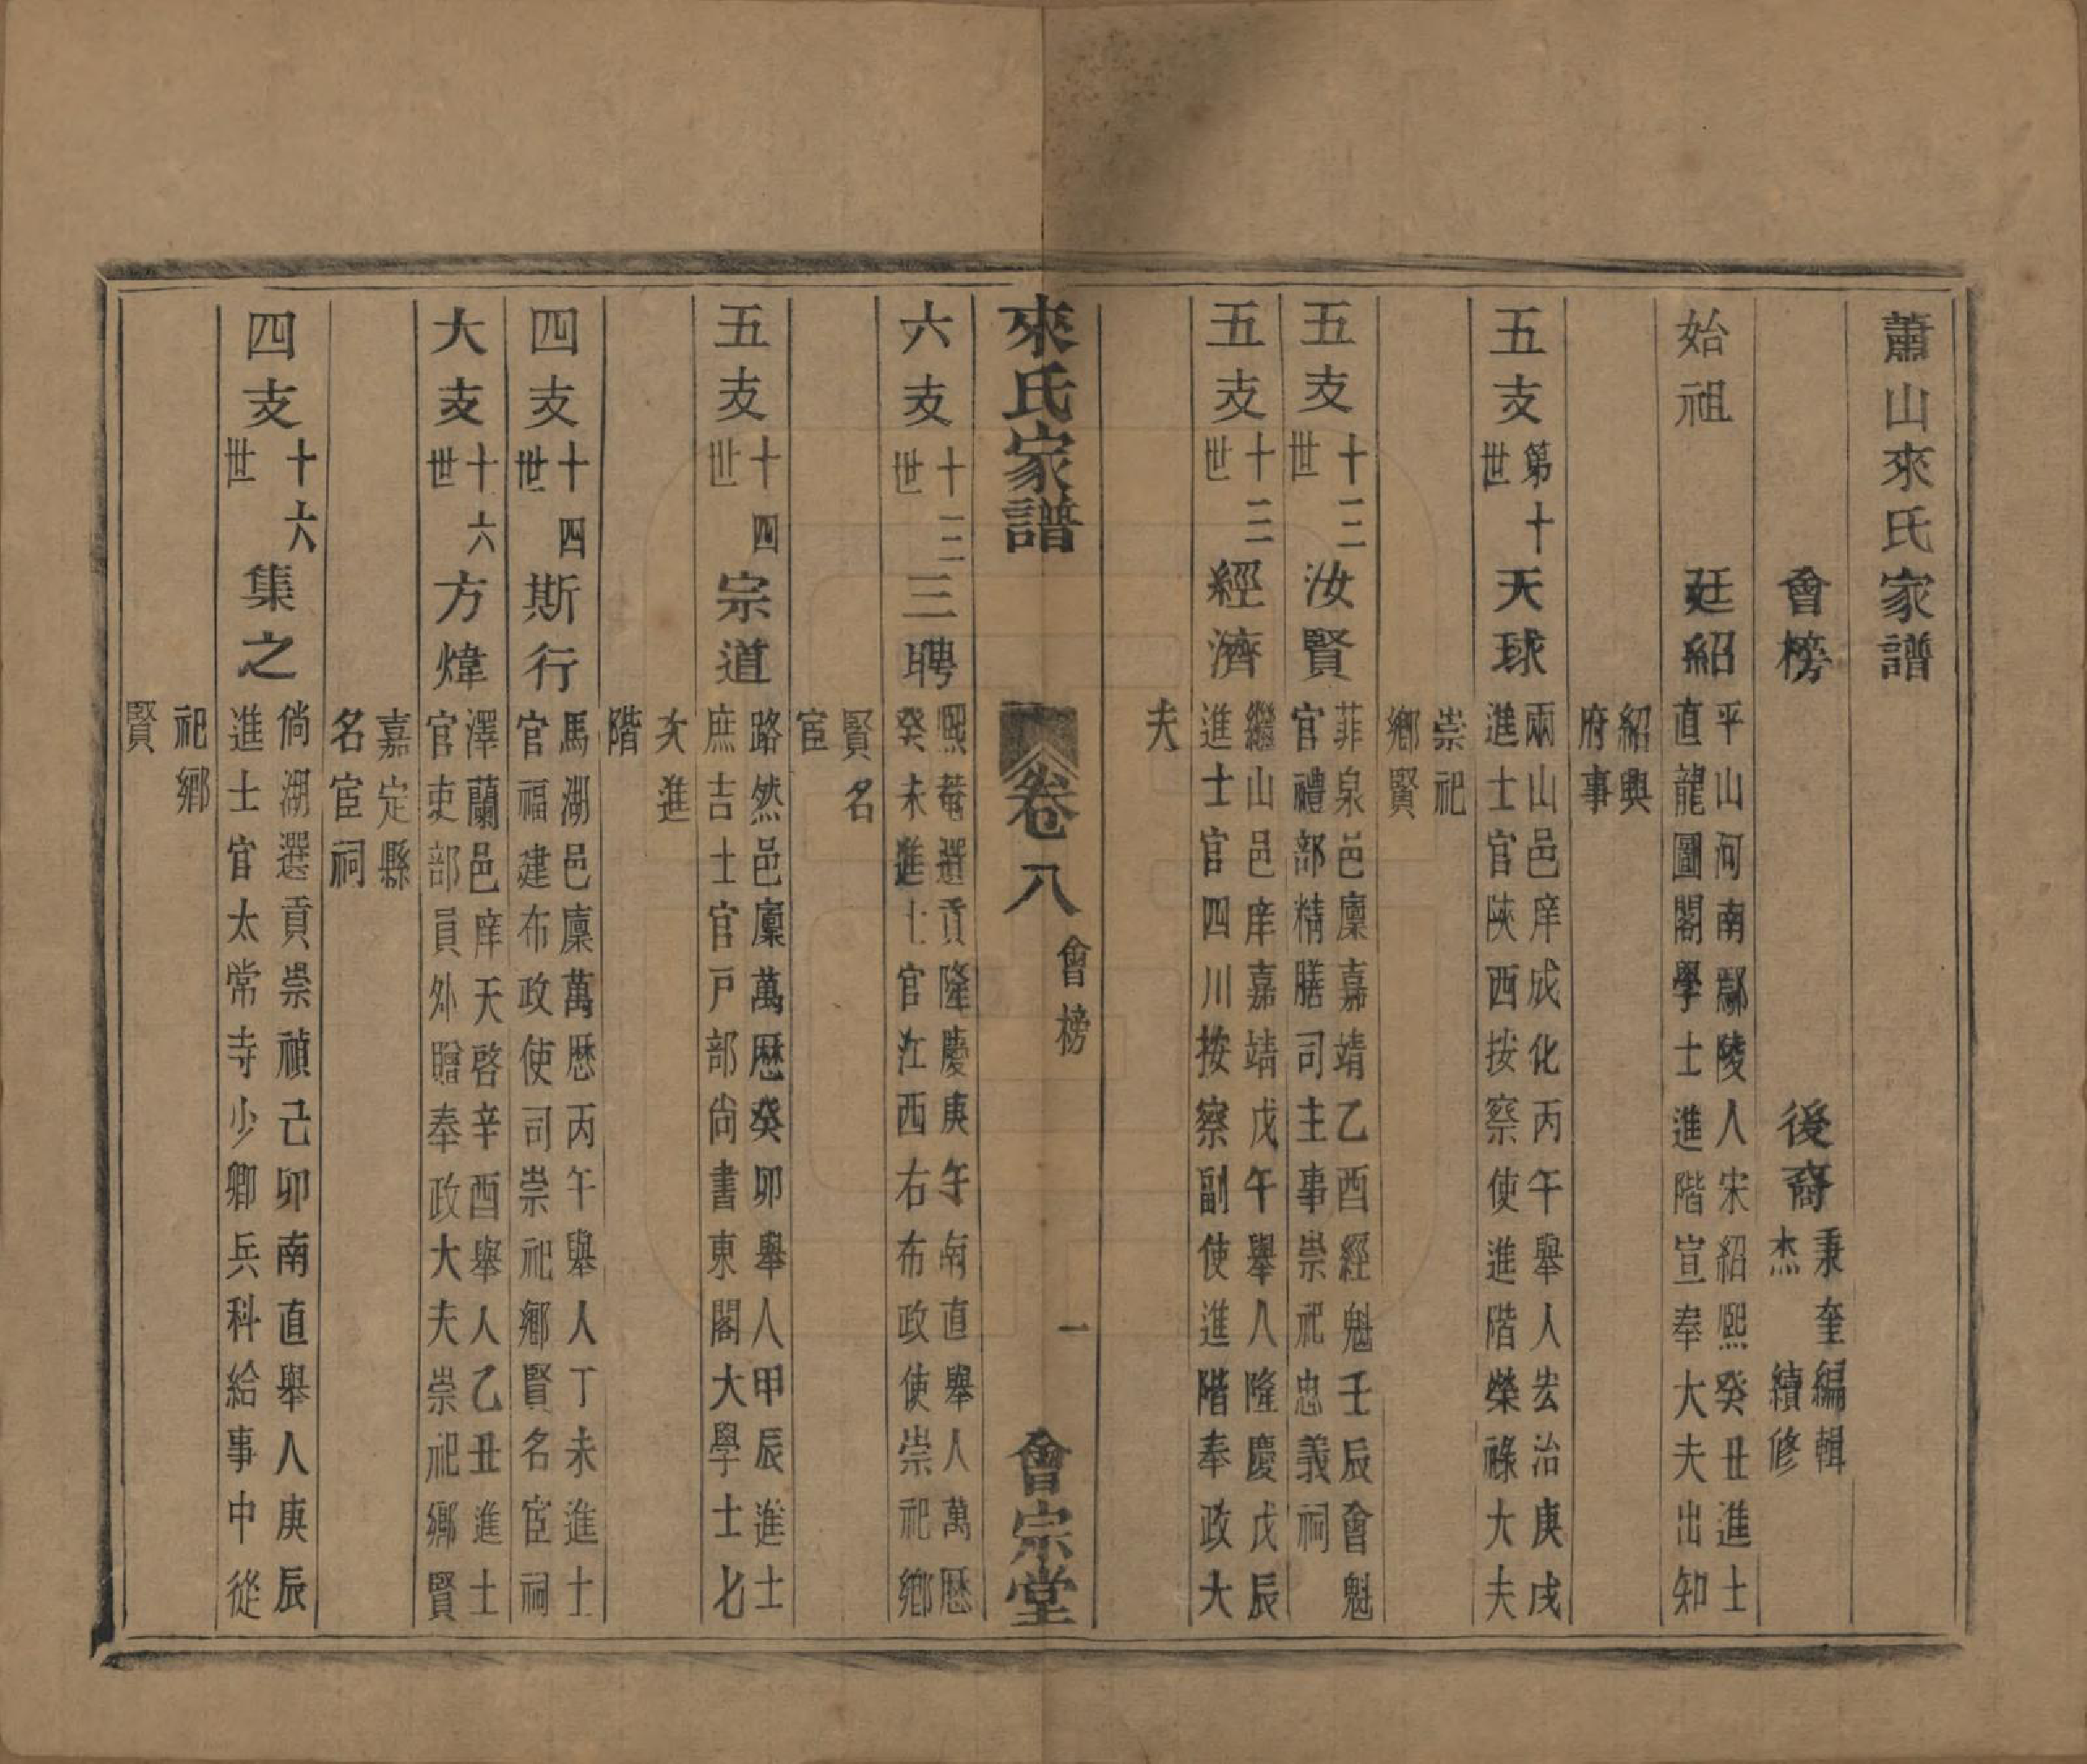 蕭山來氏家譜
會榜　後裔
秉奎編輯
杰　續修
始祖　廷紹
平山河南鄢陵人宋紹熙癸丑進士
直龍圖閣學士進階宣奉大夫出知
紹興
府事
五支　第十世　天球
兩山邑庠成化丙午舉人宏治庚戌
進士官陝西按察使進階榮祿大夫
崇祀
鄉賢
五支　十三世　汝賢
菲泉邑廩嘉靖乙酉經魁壬辰會魁
官禮部精膳司主事崇祀忠義祠
五支　十三世　經濟
繼山邑庠嘉靖戊午舉人隆慶戊辰
進士官四川按察副使進階奉政大
夫
來氏家譜　卷八　會榜　一　會宗堂
六支　十三世　三聘
熙菴選貢隆慶庚午南直舉人萬歷
癸未進士官江西右布政使崇祀鄉
賢名
宦
五支　十四世　宗道
路然邑廩萬歷癸卯舉人甲辰進士
庶吉士官戸部尚書東閣大學士
進
階
四支　十四世　斯行
馬湖邑廩萬歷丙午舉人丁未進士
官福建布政使司崇祀鄉賢名宦祠
大支　十六世　方煒
澤蘭邑庠天啓辛酉舉人乙丑進士
官吏部員外贈奉政大夫崇祀鄉賢
嘉定縣
名宦祠
四支　十六世　集之
倘湖選貢崇禎己卯南直舉人庚辰
進士官太常寺少卿兵科給事中從
祀鄉
賢